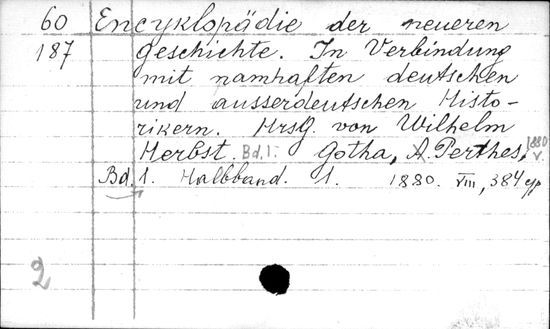 60 Encyklopädie der neueren
187 Geschichte. In Verbindung
mit namhaften deutschen
und ausserdeutschen Histo-
rikern. Hrsg. von Wilhelm
Herbst. Bd. 1. Gotha, A. Perthes, 1880
v.
Bd. 1. Halbband. 1. 1880. VIII, 384 pp
2